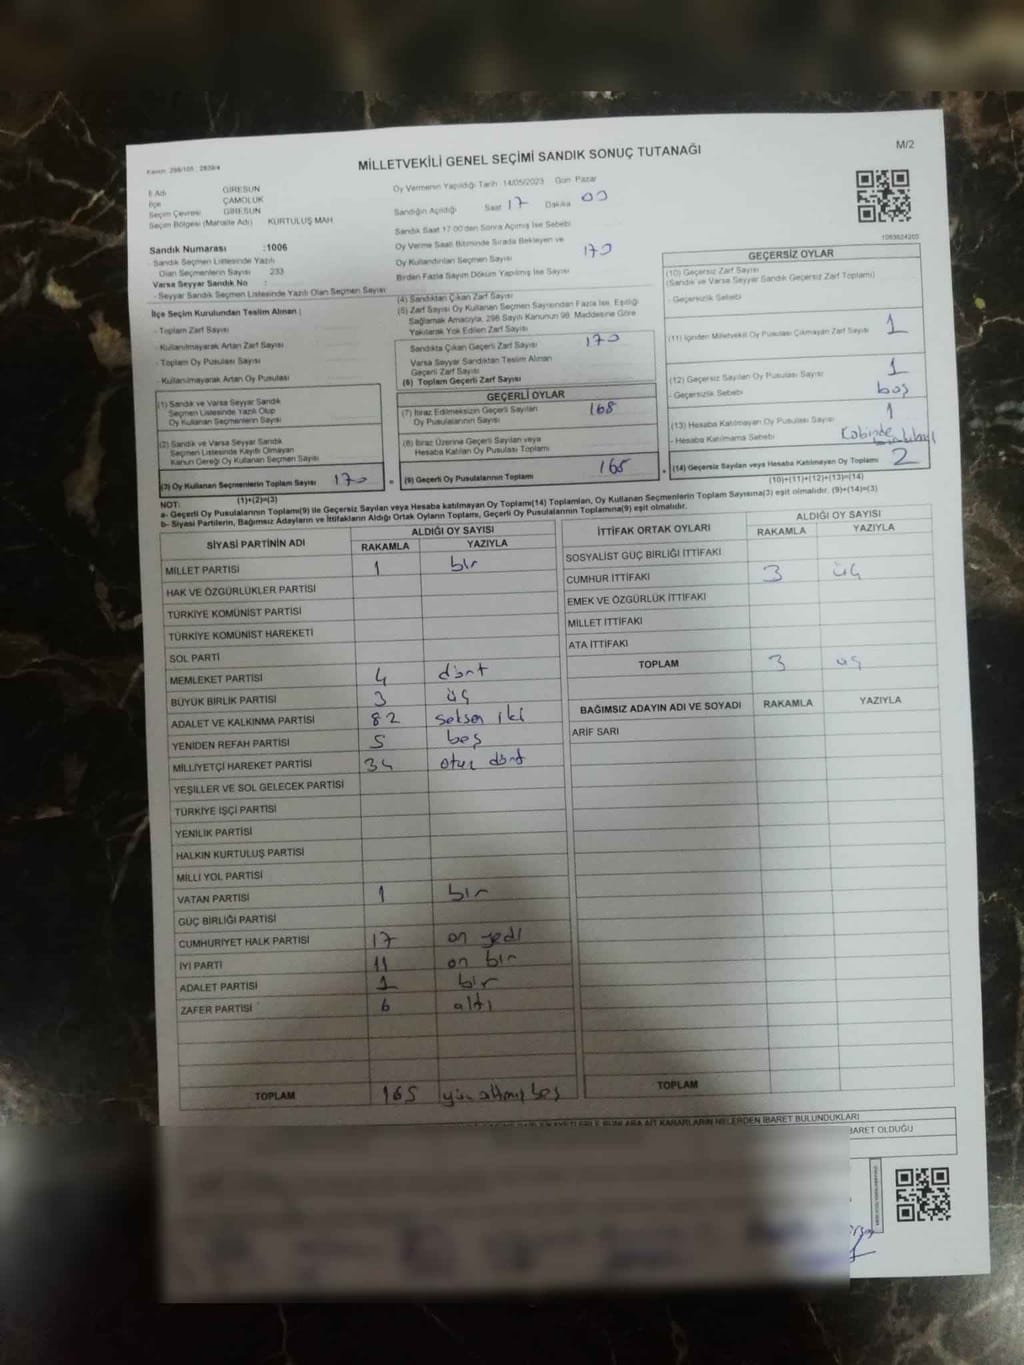 Kanun: 298/105 ; 2839/a
MİLLETVEKİLİ GENEL SEÇİMİ SANDIK SONUÇ TUTANAĞI
M/2
İl Adı GİRESUN
İlçe ÇAMOLUK
Seçim Çevresi GİRESUN
Seçim Bölgesi (Mahalle Adı) KURTULUŞ MAH
Sandık Numarası :1006
- Sandık Seçmen Listesinde Yazılı
Olan Seçmenlerin Sayısı 233
Varsa Seyyar Sandık No :
- Seyyar Sandık Seçmen Listesinde Yazılı Olan Seçmen Sayısı
İlçe Seçim Kurulundan Teslim Alınan
- Toplam Zarf Sayısı
- Kullanılmayarak Artan Zarf Sayısı
- Toplam Oy Pusulası Sayısı
- Kullanılmayarak Artan Oy Pusulası
(1) Sandık ve Varsa Seyyar Sandık
Seçmen Listesinde Yazılı Olup
Oy Kullanan Seçmenlerin Sayısı
(2) Sandık ve Varsa Seyyar Sandık
Seçmen Listesinde Kayıtlı Olmayan
Kanun Gereği Oy Kullanan Seçmen Sayısı
(3) Oy Kullanan Seçmenlerin Toplam Sayısı 170
(1)+(2)=(3)
Oy Vermenin Yapıldığı Tarih 14/05/2023 Gün Pazar
Sandığın Açıldığı Saat 17 Dakika 00
Sandık Saat 17:00'den Sonra Açılmış İse Sebebi
Oy Verme Saati Bitiminde Sırada Bekleyen ve
Oy Kullandırılan Seçmen Sayısı 170
Birden Fazla Sayım Döküm Yapılmış İse Sayısı
(4) Sandıktan Çıkan Zarf Sayısı
(5) Zarf Sayısı Oy Kullanan Seçmen Sayısından Fazla İse, Eşitliği
Sağlamak Amacıyla, 298 Sayılı Kanunun 98. Maddesine Göre
Yakılarak Yok Edilen Zarf Sayısı
Sandıkta Çıkan Geçerli Zarf Sayısı 170
Varsa Seyyar Sandıktan Teslim Alınan
Geçerli Zarf Sayısı
(6) Toplam Geçerli Zarf Sayısı
GEÇERLİ OYLAR
(7) İtiraz Edilmeksizin Geçerli Sayılan
Oy Pusulasının Sayısı 168
(8) İtiraz Üzerine Geçerli Sayılan veya
Hesaba Katılan Oy Pusulası Toplamı
(9) Geçerli Oy Pusulalarının Toplamı 165
1063624203
GEÇERSİZ OYLAR
(10) Geçersiz Zarf Sayısı
(Sandık ve Varsa Seyyar Sandık Geçersiz Zarf Toplamı)
- Geçersizlik Sebebi
(11) İçinden Milletvekili Oy Pusulası Çıkmayan Zarf Sayısı 1
(12) Geçersiz Sayılan Oy Pusulası Sayısı 1
- Geçersizlik Sebebi boş
(13) Hesaba Katılmayan Oy Pusulası Sayısı 1
- Hesaba Katılmama Sebebi Kabinde
(14) Geçersiz Sayılan veya Hesaba Katılmayan Oy Toplamı 2
(10)+(11)+(12)+(13)=(14)
NOT:
a- Geçerli Oy Pusulalarının Toplamı(9) ile Geçersiz Sayılan veya Hesaba katılmayan Oy Toplamı(14) Toplamları, Oy Kullanan Seçmenlerin Toplam Sayısına(3) eşit olmalıdır. (9)+(14)=(3)
b- Siyasi Partilerin, Bağımsız Adayların ve İttifakların Aldığı Ortak Oyların Toplamı, Geçerli Oy Pusulalarının Toplamına(9) eşit olmalıdır.
SİYASİ PARTİNİN ADI ALDIĞI OY SAYISI
RAKAMLA YAZIYLA
MİLLET PARTİSİ 1 bir
HAK VE ÖZGÜRLÜKLER PARTİSİ
TÜRKİYE KOMÜNİST PARTİSİ
TÜRKİYE KOMÜNİST HAREKETİ
SOL PARTİ
MEMLEKET PARTİSİ 4 dört
BÜYÜK BİRLİK PARTİSİ 3 üç
ADALET VE KALKINMA PARTİSİ 82 seksen iki
YENİDEN REFAH PARTİSİ 5 beş
MİLLİYETÇİ HAREKET PARTİSİ 34 otuz dört
YEŞİLLER VE SOL GELECEK PARTİSİ
TÜRKİYE İŞÇİ PARTİSİ
YENİLİK PARTİSİ
HALKIN KURTULUŞ PARTİSİ
MİLLİ YOL PARTİSİ
VATAN PARTİSİ 1 bir
GÜÇ BİRLİĞİ PARTİSİ
CUMHURİYET HALK PARTİSİ 17 on yedi
İYİ PARTİ 11 on bir
ADALET PARTİSİ 1 bir
ZAFER PARTİSİ 6 altı
TOPLAM 165 yüz altmış beş
İTTİFAK ORTAK OYLARI ALDIĞI OY SAYISI
RAKAMLA YAZIYLA
SOSYALİST GÜÇ BİRLİĞİ İTTİFAKI
CUMHUR İTTİFAKI 3 üç
EMEK VE ÖZGÜRLÜK İTTİFAKI
MİLLET İTTİFAKI
ATA İTTİFAKI
TOPLAM 3 üç
BAĞIMSIZ ADAYIN ADI VE SOYADI RAKAMLA YAZIYLA
ARİF SARI
TOPLAM
KARARLARIN NELERDEN İBARET BULUNDUKLARI
İBARET OLDUĞU